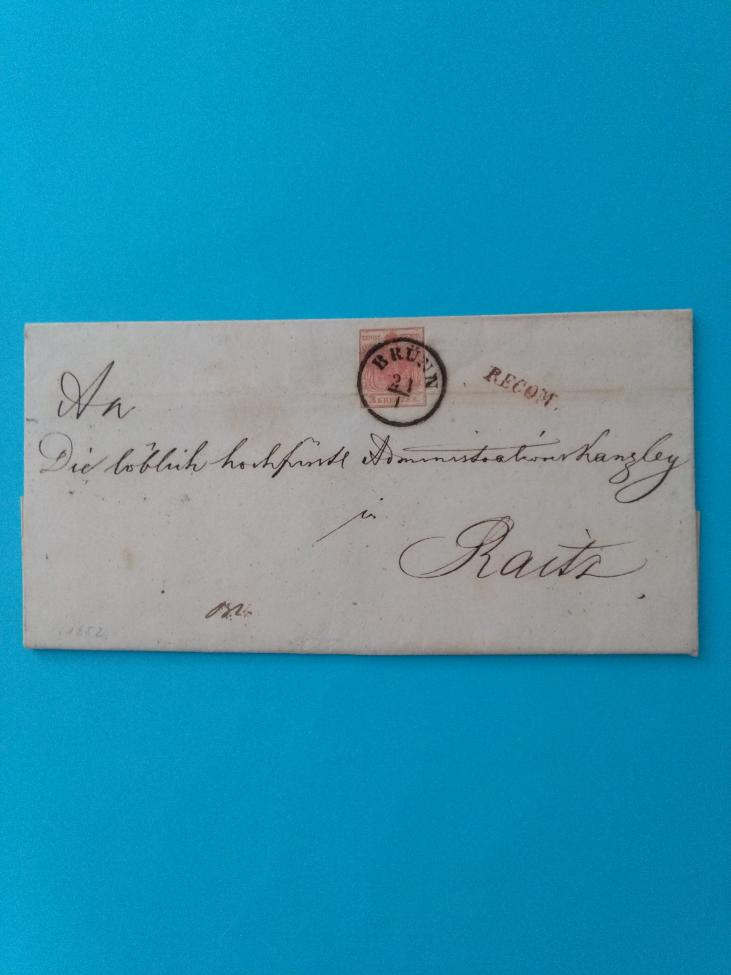 BRÜNN
21
1
3 KREUZER
RECOM.
An
Die löblich hochfürstl Administrations Kanzley
in
Raitz
1852